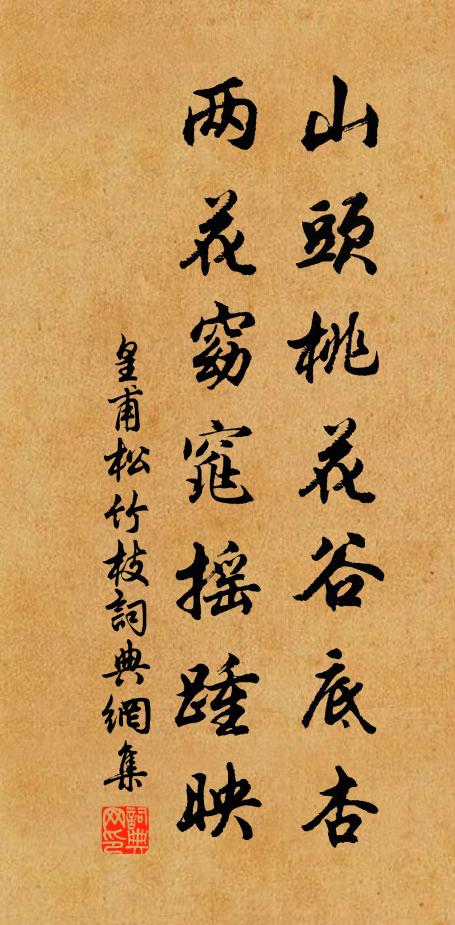 山頭桃花谷底杏
两花窈窕摇踵映
皇甫松竹枝詞典網集
詞典网印